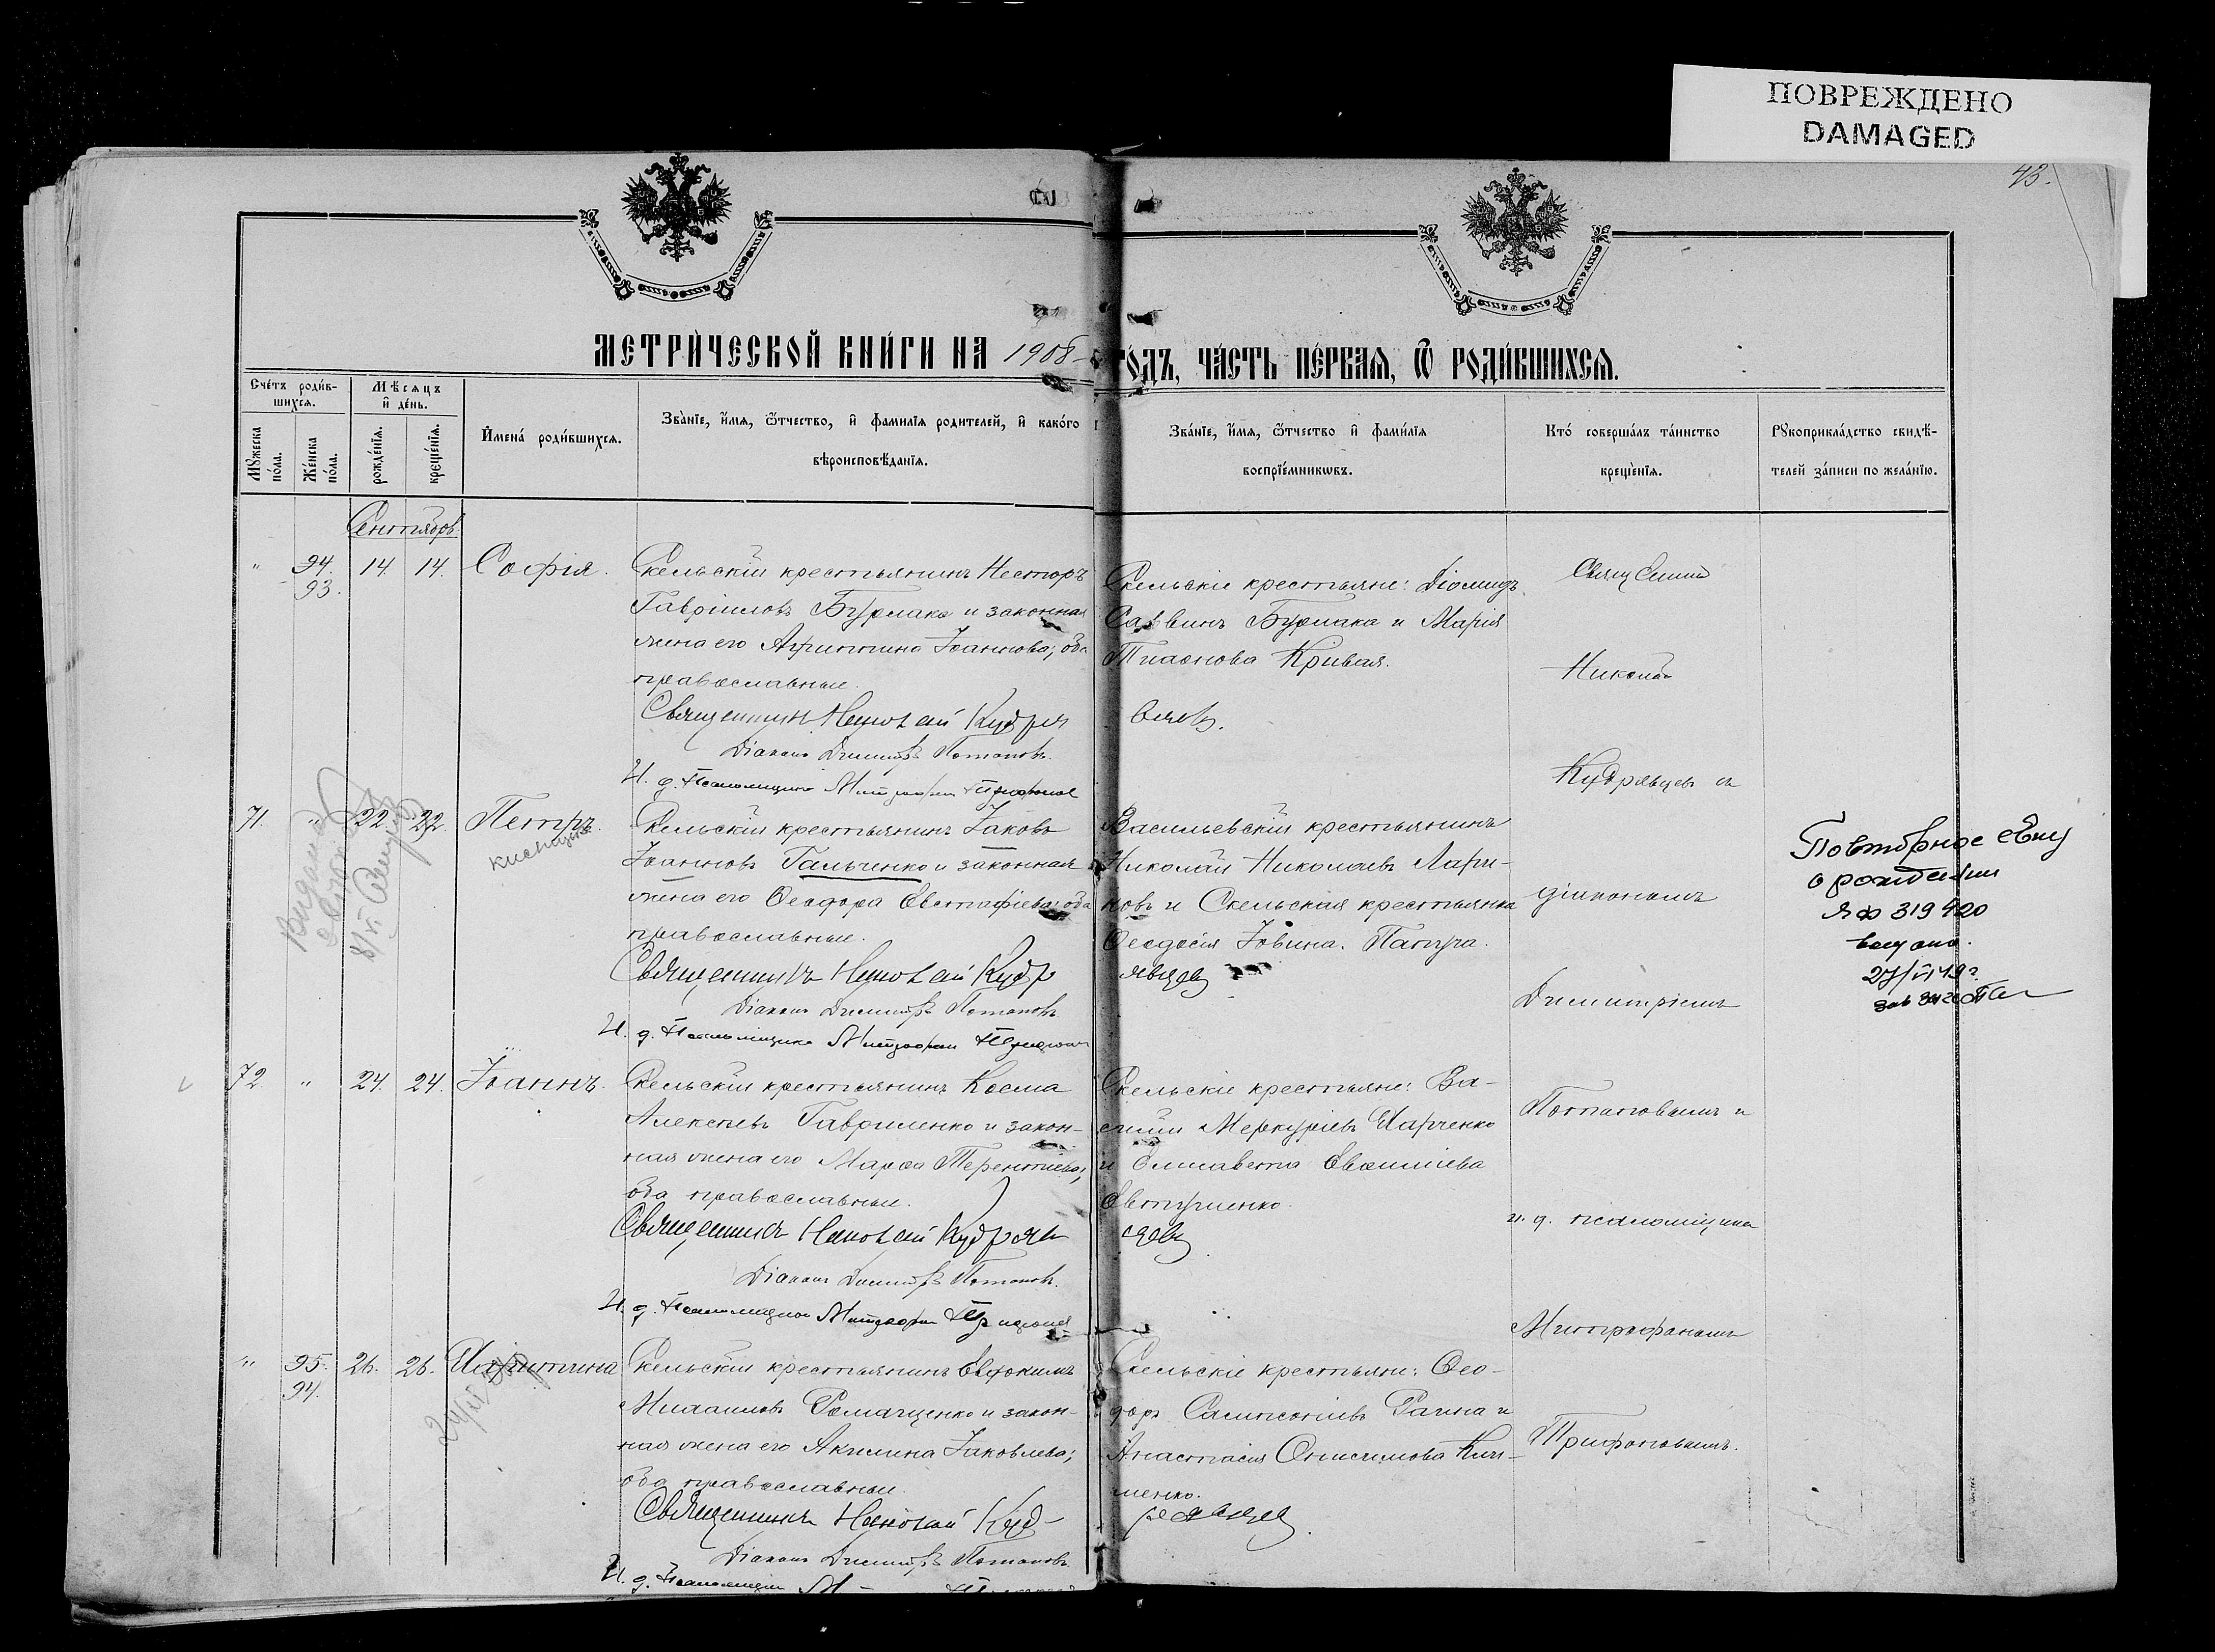 ПОВРЕЖДЕНО
DAMAGED
43.
МЕТРИ́ЧЕСКОЙ КНИ́ГИ НА 1908 ГО́ДЪ, ЧА́СТЬ ПЕ́РВАЯ, Ѿ РОДИ́ВШИХСЯ.
Сче́тъ роди́в-
шихся.
Мѣсяцъ
и де́нь.
Му́жеска по́ла.
Же́нска по́ла.
рожде́нїя.
креще́нїя.
Имена́ роди́вшихся.
Зва́нїе, и́мя, ѻ́тчество, и фами́лїя родителей, и како́го
вѣроисповѣ́данїя.
Зва́нїе, и́мя, ѻ́тчество и фами́лїя
воспрїе́мниковъ.
Кто́ соверша́лъ та́инство
креще́нїя.
Рукоприкла́дство свидѣ́-
телей за́писи по жела́нїю.
Сентябрь
" 94. 14. 14. Софія.
93.
Скельскій крестьянинъ Несторъ
Гавріиловъ Бурлака и законная
жена его Агриппина Іоаннова; оба
православные.
Священникъ Николай Кудря
Діаконъ Димитрій Потаповъ
И. д. Псаломщика Митрофанъ Трифонов
Скельскіе крестьяне: Діомидъ
Саввинъ Бурлака и Марія
Кривая.
Священник
Николай
Кудрявцев съ
71. " 22. 22. Петръ.
Скельскій крестьянинъ Іаковъ
Іоанновъ Гальченко и законная
жена его Ѳеодора Евстафіева; оба
православные.
Священникъ Николай Кудр
Діаконъ Димитрій Потаповъ
И. д. Псаломщика Митрофанъ Трифонов
Васильевскій крестьянинъ
Николай Николаевъ Лари-
новъ и Скельская крестьянка
Ѳеодосія Іовина Папуга.
явцев
діакономъ
Димитріемъ
Повторное свид
о рождении
ЯФ 319420
выдано.
27/VI 49 г.
72 " 24. 24. Іоаннъ.
Скельскій крестьянинъ Косма
Алексѣевъ Гавриленко и закон-
ная жена его Марѳа Терентіева;
оба православные.
Священникъ Николай Кудряв
Діаконъ Димитрій Потаповъ.
И. д. Псаломщика Митрофанъ Трифонов
Скельскіе крестьяне: Ва-
силій Меркуріевъ Харченко
и Елисавета Евѳиміева
Евтушенко.
цевъ
Потаповымъ и
и. д. псаломщика
Митрофаномъ
" 95. 26. 26. Харитина
94.
Скельскій крестьянинъ Евдокимъ
Михаиловъ Ромащенко и закон-
ная жена его Акилина Іаковлева;
оба православные.
Священникъ Николай Куд-
Діаконъ Димитрій Потаповъ
И. д. Псаломщик
Скельскіе крестьяне: Ѳео-
доръ Сампсоніевъ Рагина и
Анастасія Онисимова Кли-
менко.
рявцев
Трифоновымъ.